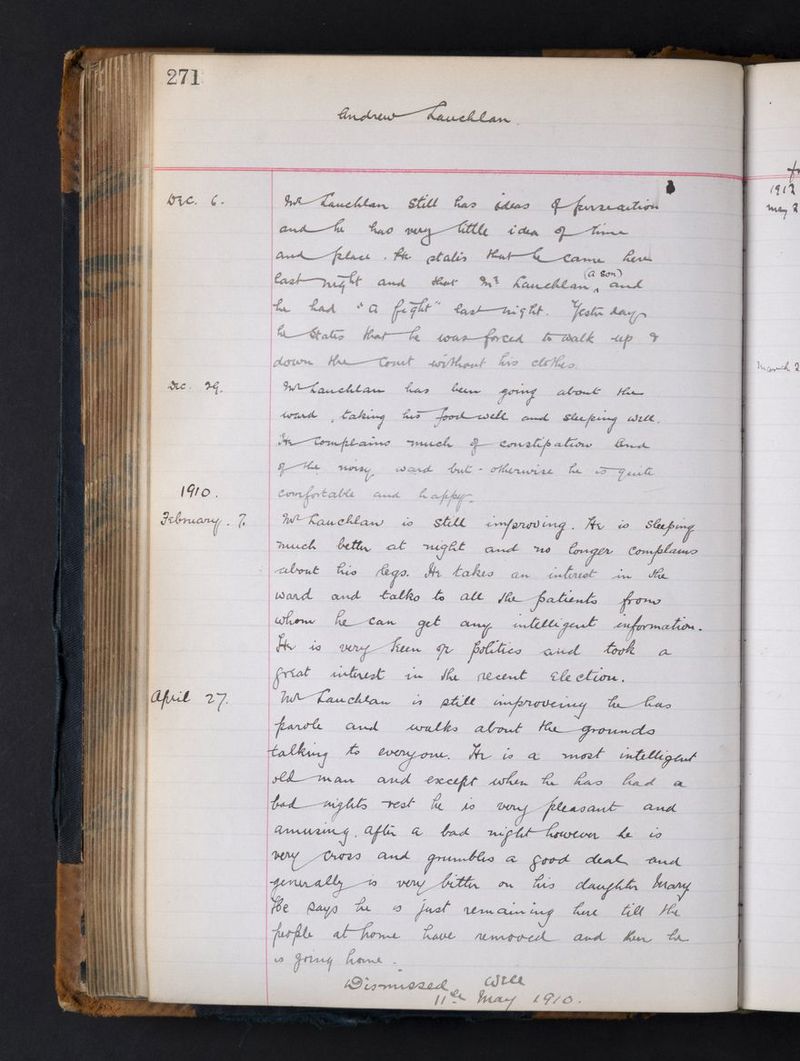 271
Andrew Lauchlan.
Dec. 6. Mr Lauchlan still has ideas of persecution
and he has very little idea of time
and place. He states that he came here
last night and that Mr Lauchlan (a son) and
he had "a fight" last night. Yesterday
he states that he was forced to walk up &
down the Court without his clothes.
Dec. 29. Mr Lauchlan has been going about the
ward, taking his food well and sleeping well.
He complains much of constipation and
of the noisy ward but - otherwise he is quite
1910. comfortable and happy.
February. 7. Mr Lauchlan is still improving. He is sleeping
much better at night and no longer complains
about his legs. He takes an interest in the
ward and talks to all the patients from
whom he can get any intelligent information.
He is very keen on politics and took a
great interest in the recent election.
April 27. Mr Lauchlan is still improveing he has
parole and walks about the grounds
talking to everyone. He is a most intelligent
old man and except when he has had a
bad nights rest he is very pleasant and
amusing. After a bad night however he is
very cross and grumbles a good deal and
generally is very bitter on his daughter Mary
He says he is just remaining here till the
people at home have removed and then he
is going home.
Dismissed Well
11th May 1910.
1912
May 2
March 2